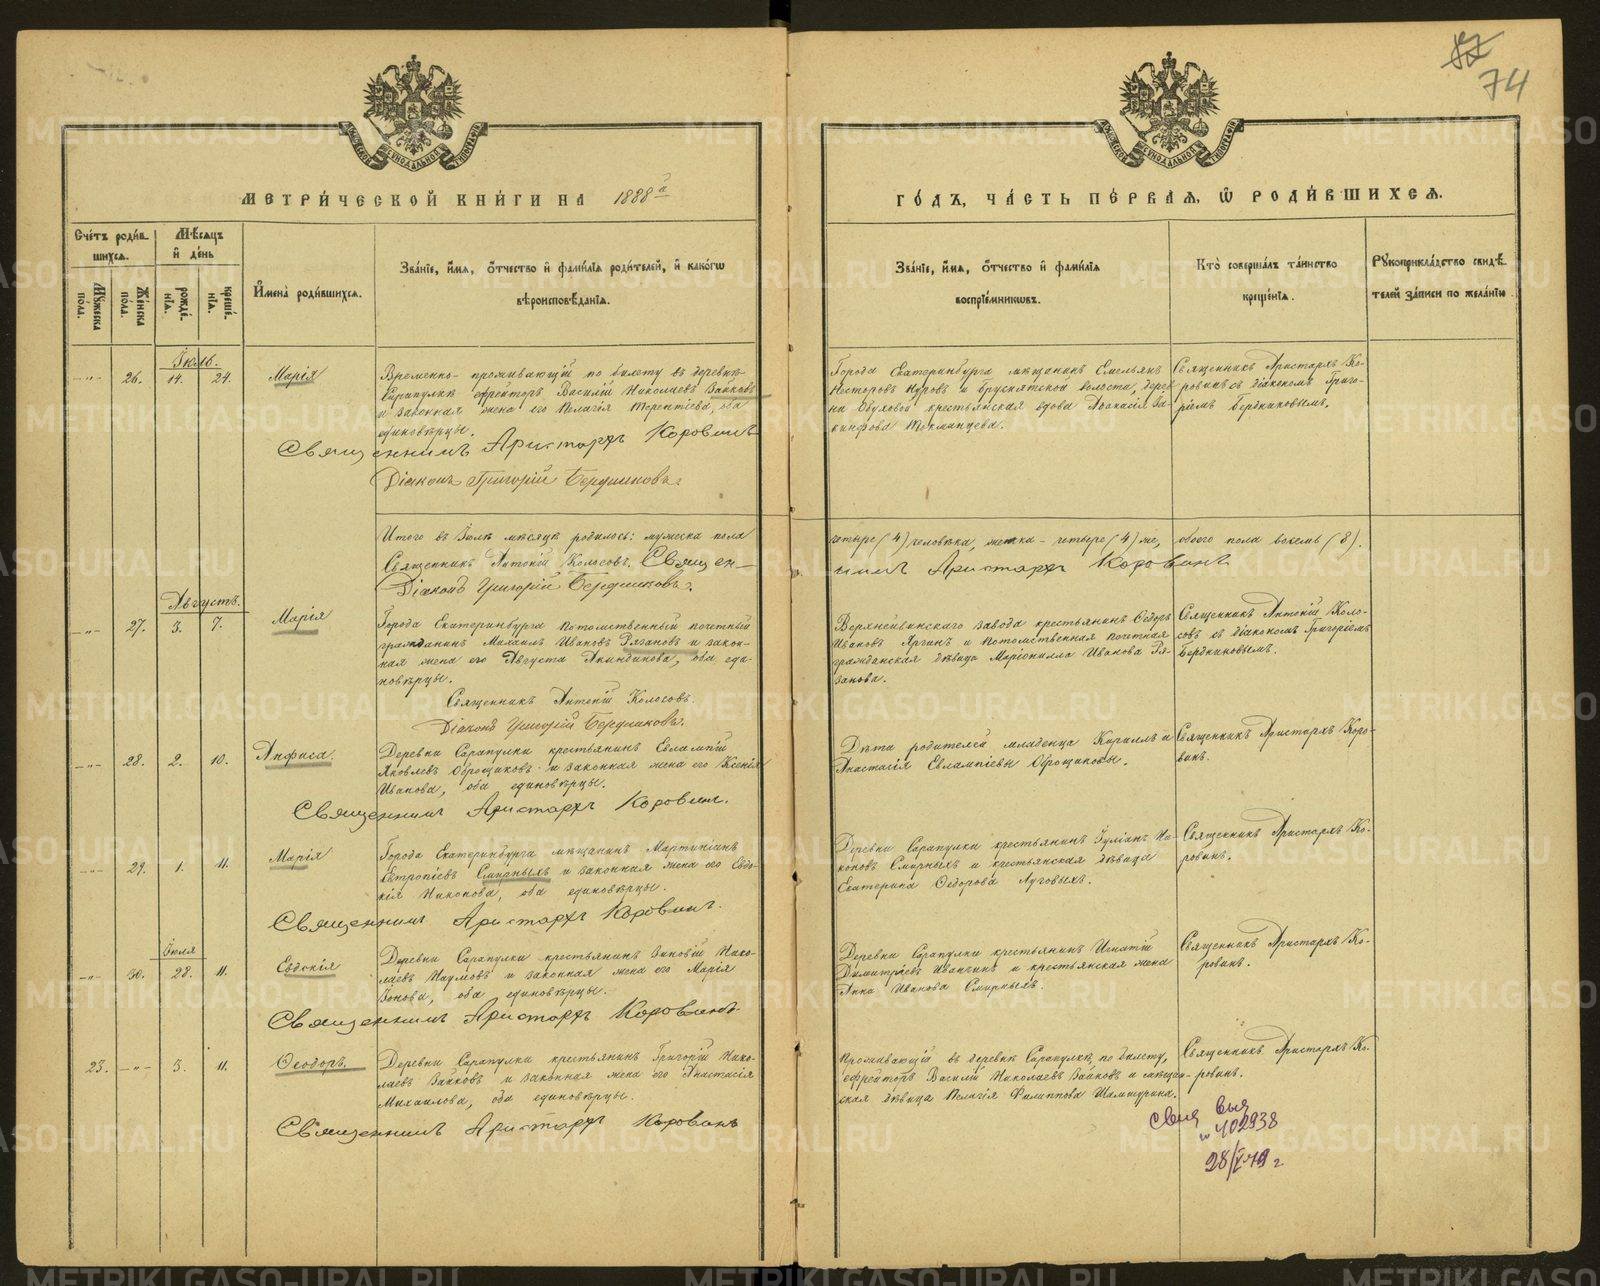 87
74
МЕТРИ́ЧЕСКОЙ КНИ́ГИ НА 1888й
ГО́ДЪ, ЧА́СТЬ ПЕ́РВАЯ, Ѡ РОДИ́ВШИХСЯ.
Сче́тъ роди́вшихся.
Мѣ́сяцъ и де́нь
Мꙋ́жеска по́ла.
Же́нска по́ла.
рожде́нїя.
креще́нїя.
Имена̀ роди́вшихся.
Зва́нїе, и́мя, ѻ́тчество и фами́лїя роди́телей, и како́гѡ
вѣроисповѣ́данїя.
Зва́нїе, и́мя, ѻ́тчество и фами́лїя
воспрїе́мникѡвъ.
Кто̀ соверша́лъ та́инство
креще́нїя.
Рꙋкоприкла́дство свидѣ́телей за́писи по жела́нїю.
Іюль.
26. 14. 24. Марія
Временно-проживающій по билету въ деревнѣ
Сарапулкѣ ефрейторъ Василій Николаевъ Зайковъ
и законная жена его Пелагія Терентіева, оба
единовѣрцы.
Священникъ Аристархъ Коровинъ
Діаконъ Григорій Бердниковъ.
Города Екатеринбурга мѣщанинъ Емельянъ
Несторовъ Нуровъ и Брусянской волости, дерев-
ни Обуховой крестьянская вдова Аѳанасія
Священникъ Аристархъ Ко-
ровинъ съ діакономъ Григо-
ріемъ Бердниковымъ.
Итого въ Іюлѣ мѣсяцѣ родилось: мужеска пола
четыре (4) человѣка, женска - четыре (4) же, обоего пола восемь (8).
Священникъ Антоній Колосовъ. Священ-
никъ Аристархъ Коровинъ
Діаконъ Григорій Бердниковъ.
Августъ.
27. 3. 7. Марія
Города Екатеринбурга потомственный почетный
гражданинъ Михаилъ Ивановъ Рязановъ и закон-
ная жена его Августа Акиндинова, оба еди-
новѣрцы.
Священникъ Антоній Колосовъ.
Діаконъ Григорій Бердниковъ.
Верхнейвинскаго завода крестьянинъ Ѳедоръ
Ивановъ Ярчинъ и потомственная почетная
гражданская дѣвица Маріонилла Иванова Ря-
занова.
Священникъ Антоній Коло-
совъ съ діакономъ Григоріемъ
Бердниковымъ.
28. 2. 10. Анфиса.
Деревни Сарапулки крестьянинъ Евлампій
Яковлевъ Оброщиковъ и законная жена его Ксенія
Иванова, оба единовѣрцы.
Священникъ Аристархъ Коровинъ.
Дѣти родителей младенца Кириллъ и
Анастасія Евлампіевы Оброщиковы.
Священникъ Аристархъ Коро-
винъ.
29. 1. 11. Марія
Города Екатеринбурга мѣщанинъ Мартиніанъ
Петропіевъ Смирныхъ и законная жена его Евдо-
кія Никонова, оба единовѣрцы.
Священникъ Аристархъ Коровинъ.
Деревни Сарапулки крестьянинъ Іуліанъ Ни-
коновъ Смирныхъ и крестьянская дѣвица
Екатерина Ѳедорова Луговыхъ.
Священникъ Аристархъ Ко-
ровинъ.
Іюля
30. 28. 11. Евдокія
Деревни Сарапулки крестьянинъ Зиновій Нико-
лаевъ Наумовъ и законная жена его Марія
Зонова, оба единовѣрцы.
Священникъ Аристархъ Коровинъ
Деревни Сарапулки крестьянинъ Игнатій
Димитріевъ Ивангинъ и крестьянская жена
Анна Иванова Смирныхъ.
Священникъ Аристархъ Ко-
ровинъ.
23. 3. 11. Ѳеодоръ.
Деревни Сарапулки крестьянинъ Григорій Нико-
лаевъ Зайковъ и законная жена его Анастасія
Михаилова, оба единовѣрцы.
Священникъ Аристархъ Коровинъ
Проживающій въ деревнѣ Сарапулкѣ, по билету,
ефрейторъ Василій Николаевъ Зайковъ и мѣщан-
ская дѣвица Пелагія Филиппова Шамшурина.
Священникъ Аристархъ Ко-
ровинъ.
402938
METRIKI.GASO-URAL.RU